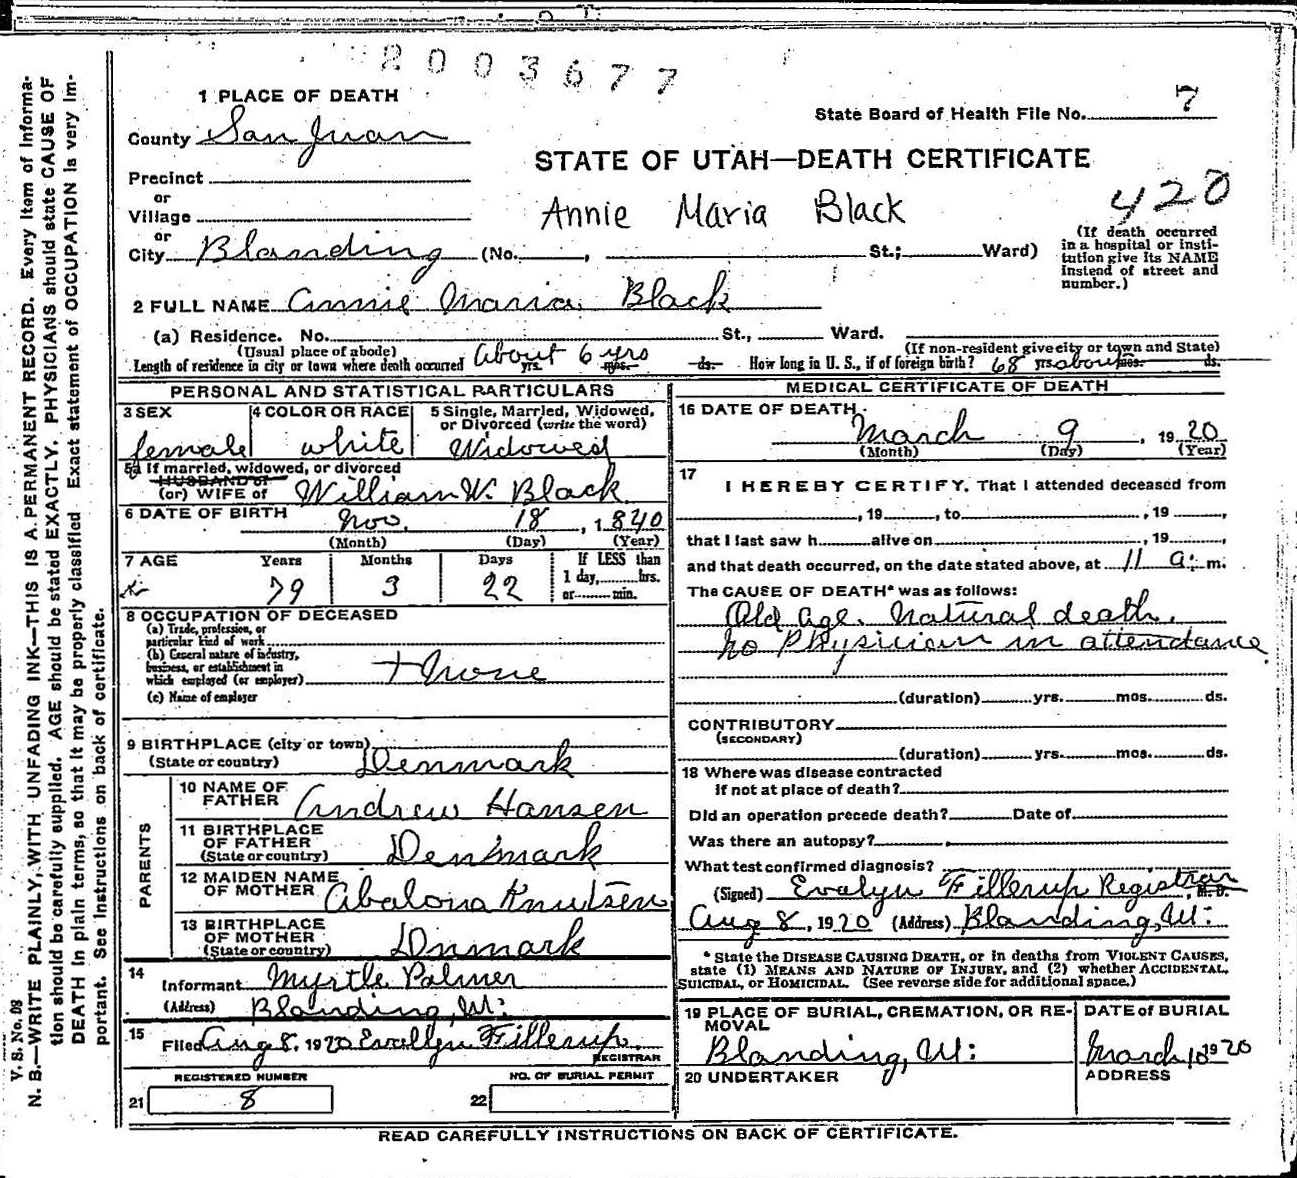 2003677
1 PLACE OF DEATH
State Board of Health File No. 7
County San Juan
STATE OF UTAH—DEATH CERTIFICATE
Precinct
or
Village
Annie Maria Black
420
or
City Blanding (No. , St.; Ward)
(If death occurred in a hospital or insti-
tution give its NAME
instead of street and
number.)
2 FULL NAME Annie Maria Black
(a) Residence. No. St., Ward.
(Usual place of abode)
(If non-resident give city or town and State)
Length of residence in city or town where death occurred About 6 yrs yrs. mos. ds. How long in U. S., if of foreign birth? 68 yrs. about mos. ds.
PERSONAL AND STATISTICAL PARTICULARS
3 SEX
female
4 COLOR OR RACE
white
5 Single, Married, Widowed,
or Divorced (write the word)
Widowed
5a If married, widowed, or divorced
HUSBAND of
(or) WIFE of William W. Black
6 DATE OF BIRTH Nov. 18, 1840
(Month) (Day) (Year)
7 AGE Years Months Days If LESS than
79 3 22 1 day, hrs.
or min.
8 OCCUPATION OF DECEASED
(a) Trade, profession, or
particular kind of work
(b) General nature of industry,
business, or establishment in
which employed (or employer) None
(c) Name of employer
9 BIRTHPLACE (city or town)
(State or country) Denmark
PARENTS
10 NAME OF
FATHER Andrew Hansen
11 BIRTHPLACE
OF FATHER
(State or country) Denmark
12 MAIDEN NAME
OF MOTHER Abalona Knutsen
13 BIRTHPLACE
OF MOTHER
(State or country) Dnmark
14
Informant Myrtle Palmer
(Address) Blanding, Ut:
15
Filed Aug 8, 1920 Evellyn Fillerup
REGISTRAR
REGISTERED NUMBER
21 8
NO. OF BURIAL PERMIT
22
MEDICAL CERTIFICATE OF DEATH
16 DATE OF DEATH
March 9, 1920
(Month) (Day) (Year)
17
I HEREBY CERTIFY, That I attended deceased from
, 19 , to , 19 ,
that I last saw h alive on , 19 ,
and that death occurred, on the date stated above, at 11 a. m.
The CAUSE OF DEATH* was as follows:
Old age. Natural death.
no Physician in attendance.
(duration) yrs. mos. ds.
CONTRIBUTORY
(SECONDARY)
(duration) yrs. mos. ds.
18 Where was disease contracted
if not at place of death?
Did an operation precede death? Date of
Was there an autopsy?
What test confirmed diagnosis?
(Signed) Evalyn Fillerup Registrar, M. D.
Aug 8, 1920 (Address) Blanding, Ut:
* State the DISEASE CAUSING DEATH, or in deaths from VIOLENT CAUSES,
state (1) MEANS AND NATURE OF INJURY, and (2) whether ACCIDENTAL,
SUICIDAL, or HOMICIDAL. (See reverse side for additional space.)
19 PLACE OF BURIAL, CREMATION, OR RE-
MOVAL
Blanding, Ut:
DATE OF BURIAL
March 1920
20 UNDERTAKER
ADDRESS
READ CAREFULLY INSTRUCTIONS ON BACK OF CERTIFICATE.
V. S. No. 98
N. B.—WRITE PLAINLY, WITH UNFADING INK—THIS IS A PERMANENT RECORD. Every item of informa-
tion should be carefully supplied. AGE should be stated EXACTLY. PHYSICIANS should state CAUSE OF
DEATH in plain terms, so that it may be properly classified. Exact statement of OCCUPATION is very im-
portant. See instructions on back of certificate.